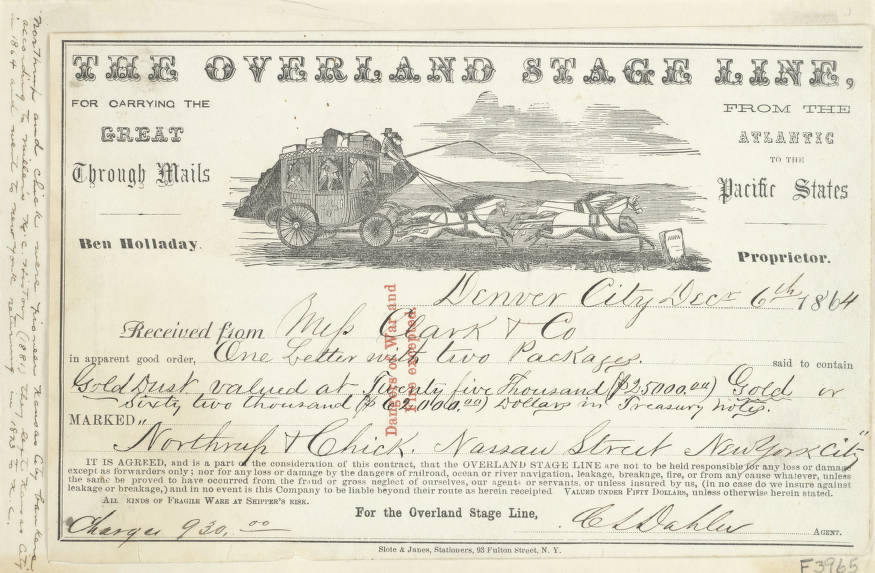 THE OVERLAND STAGE LINE,
FOR CARRYING THE
GREAT
Through Mails
Ben Holladay.
FROM THE
ATLANTIC
TO THE
Pacific States
Proprietor.
Denver City Decr 6th 1864
Received from Mess Clark & Co
in apparent good order, One Letter with two Packages. said to contain
Gold Dust valued at Twenty five Thousand ($25000.00) Gold or
Sixty two thousand ($62,000.00) Dollars in Treasury notes.
MARKED "Northrup & Chick. Nassau Street New York City"
Dangers of War and
Fire excepted.
IT IS AGREED, and is a part of the consideration of this contract, that the OVERLAND STAGE LINE are not to be held responsible for any loss or damage
except as forwarders only; nor for any loss or damage by the dangers of railroad, ocean or river navigation, leakage, breakage, fire, or from any cause whatever, unless
the same be proved to have occurred from the fraud or gross neglect of ourselves, our agents or servants, or unless insured by us, (in no case do we insure against
leakage or breakage,) and in no event is this Company to be liable beyond their route as herein receipted VALUED UNDER FIFTY DOLLARS, unless otherwise herein stated.
ALL KINDS OF FRAGILE WARE AT SHIPPER'S RISK.
For the Overland Stage Line,
Charges 930.00
C L Dahler AGENT.
Slote & Janes, Stationers, 93 Fulton Street, N. Y.
F3965
Northrup and Chick were pioneer Kansas City bankers
according to Miller's K.C. History (1881) they left Kansas City
in 1864 and went to New York returning in 1873 to K.C.